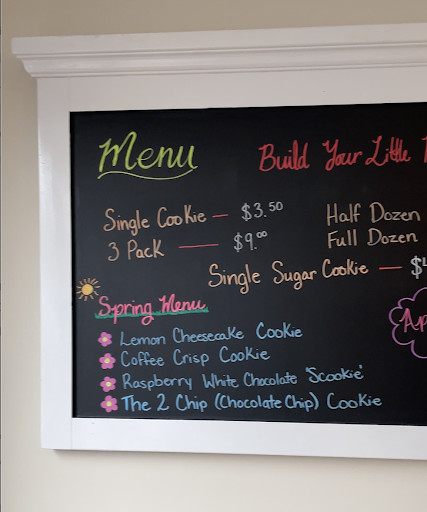 Menu
Build Your Little
Single Cookie — $3.50
3 Pack — $9.00
Half Dozen
Full Dozen
Single Sugar Cookie — $
Spring Menu
Lemon Cheesecake Cookie
Coffee Crisp Cookie
Raspberry White Chocolate 'Scookie'
The 2 Chip (Chocolate Chip) Cookie
Ap